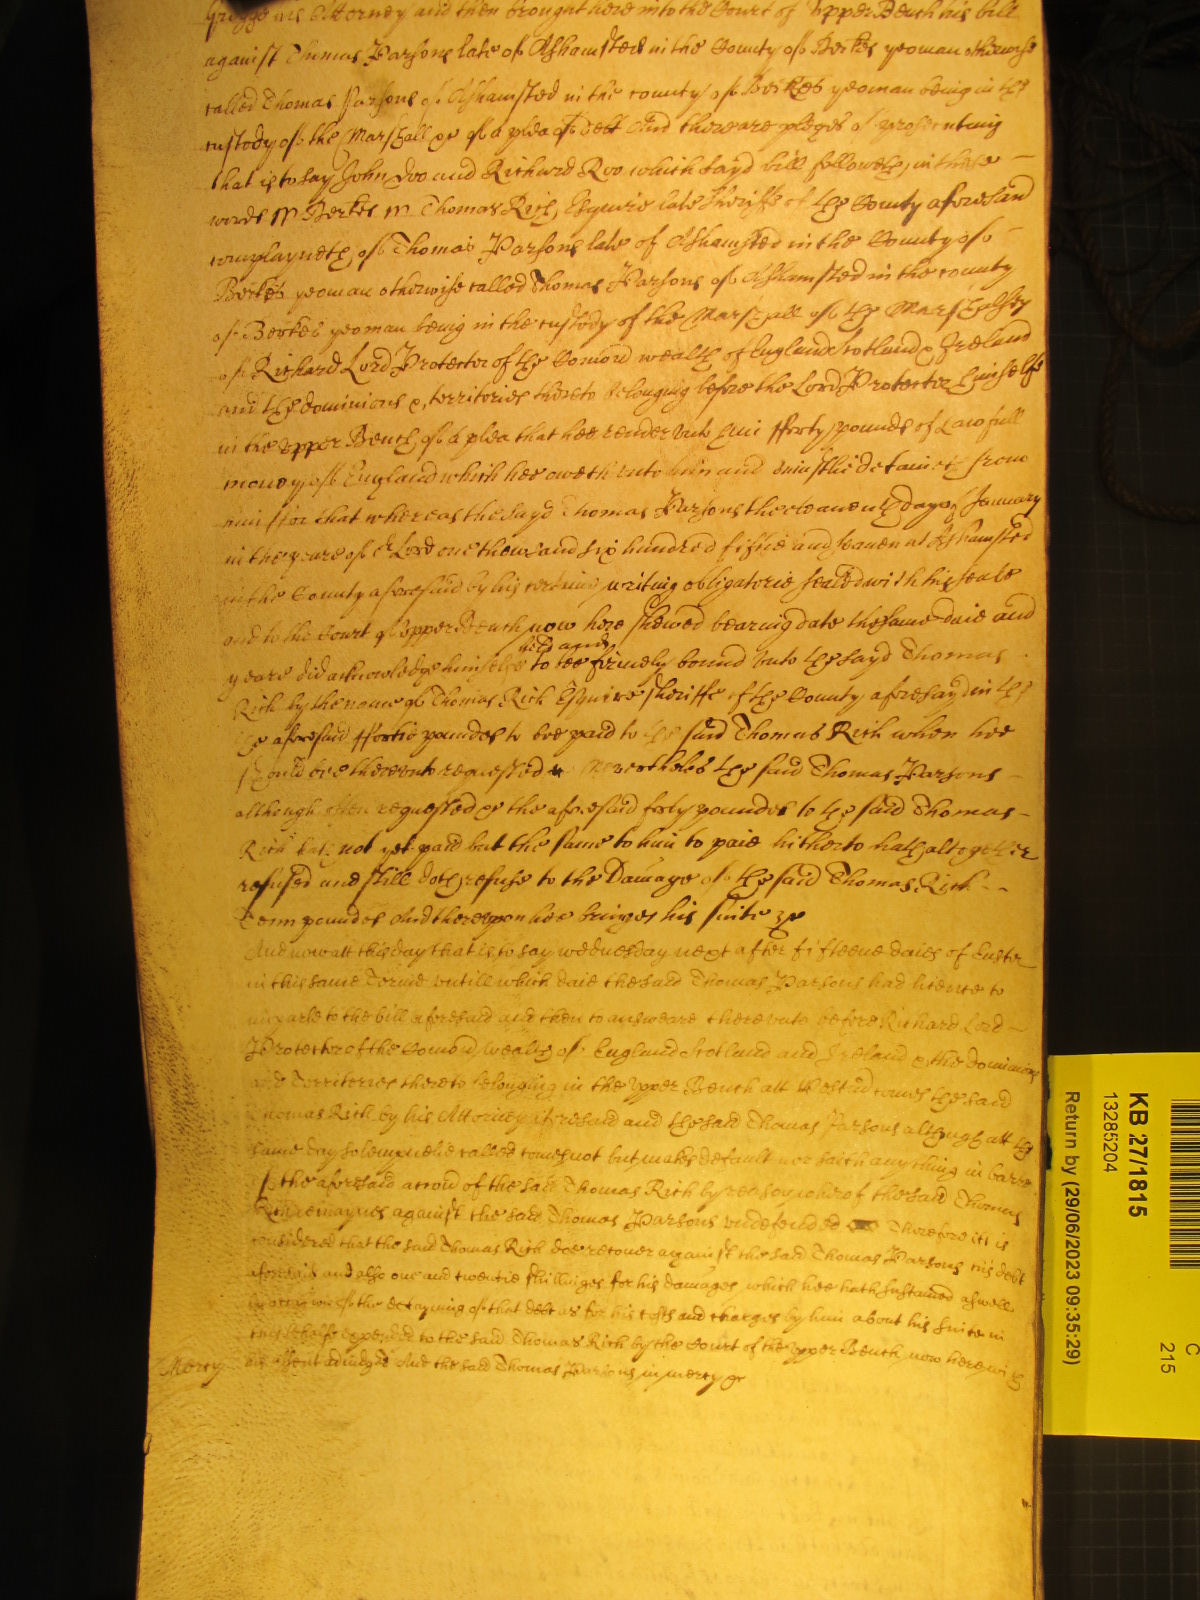 his Attorney and then brought here into the Court of Upper Bench his bill
against Thomas Parsons late of Ashamsted in the County of Berkes yeoman otherwise
called Thomas Parsons of Ashamsted in the county of Berkes yeoman being in the
custody of the Marshall &c of a plea of debt And there are pleges of prosecuting
that is to say John Doo and Richard Roo which sayd bill followeth in these
words ss Berkes ss Thomas Rich Esquire late Sheriffe of the County aforesaid
complayneth of Thomas Parsons late of Ashamsted in the County of
Berkes yeoman otherwise called Thomas Parsons of Ashamsted in the county
of Berkes yeoman being in the custody of the Marshall of the Marshalsey
of Richard Lord Protector of the Comonwealth of England Scotland & Ireland
and the dominions & territories thereto belonging before the Lord Protector himselfe
in the upper Bench of a plea that hee render unto him fforty pounds of Lawfull
money of England which hee oweth unto him and uniustlie detaineth from
him ffor that whereas the sayd Thomas Parsons the eleaventh day of January
in the yeare of or Lord one thousand six hundred fiftie and seaven at Ashamsted
in the County aforesaid by his certaine writing obligatorie sealed with his seale
and to the Court of Upper Bench now here shewed bearing date the same daie and
held and
yeare did acknowledge himselfe to bee firmely bound unto the sayd Thomas
Rich by the name of Thomas Rich Esquire Sheriffe of the County aforesayd in the
aforesaid ffortie poundes to bee paid to the said Thomas Rich when hee
should bee thereunto requested Neverthelesse the said Thomas Parsons
although often requested &c the aforesaid forty poundes to the said Thomas
Rich hath not yet paid but the same to him to paie hitherto hath altogether
refused and still doth refuse to the Damage of the said Thomas Rich
Tenn poundes And thereupon hee bringes his suite &c
And now att this day that is to say wednesday next after fifteene daies of Easter
in this same Terme untill which daie the said Thomas Parsons had licence to
imparle to the bill aforesaid and then to answeare thereunto before Richard Lord
Protector of the Comonwealth of England Scotland and Ireland & the dominions
and Territories thereto belonging in the upper Bench att Westmr comes the said
Thomas Rich by his Attorney aforesaid and the said Thomas Parsons although att the
same day solempnelie called comes not but makes default nor saith anything in barre
of the aforesaid accon of the said Thomas Rich by reason whereof the said Thomas
Rich remaynes against the said Thomas Parsons undefended Therefore itt is
considered that the said Thomas Rich doe recover against the said Thomas Parsons his debt
aforesaid and also one and twentie shillinges for his damages which hee hath sustained aswell
by occasion of the detayning of that debt as for his costs and charges by him about his suite in
this behalfe expended to the said Thomas Rich by the Court of the upper Bench now here with
his assent adiudged And the said Thomas Parsons in mercy &c
Mercy
KB 27/1815
13285204
Return by (29/06/2023 09:35:29)
C
215